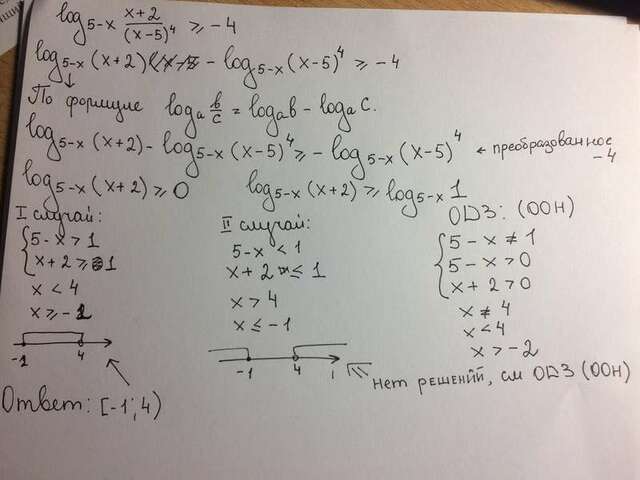 log₅₋ₓ (x+2)/(x-5)⁴ ≥ -4
log₅₋ₓ (x+2) - log₅₋ₓ (x-5)⁴ ≥ -4
По формуле logₐ b/c = logₐb - logₐc.
log₅₋ₓ (x+2) - log₅₋ₓ (x-5)⁴ ≥ - log₅₋ₓ (x-5)⁴ ← преобразованное -4
log₅₋ₓ (x+2) ≥ 0 log₅₋ₓ (x+2) ≥ log₅₋ₓ 1
I случай:
5-x > 1
x+2 ≥ 1
x < 4
x ≥ -1
-1 4
II случай:
5-x < 1
x+2 ≤ 1
x > 4
x ≤ -1
-1 4
нет решений, см ОДЗ (ООН)
ОДЗ: (ООН)
5-x ≠ 1
5-x > 0
x+2 > 0
x ≠ 4
x < 4
x > -2
Ответ: [-1; 4)